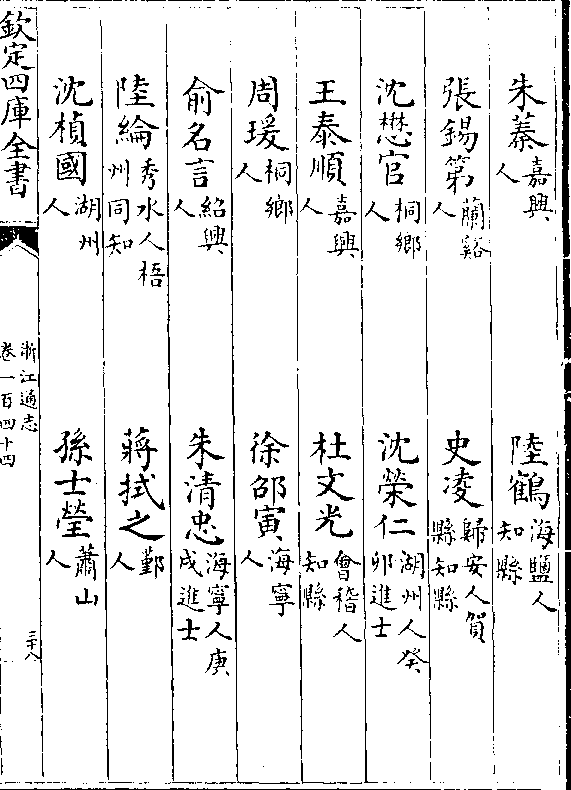 朱蓁嘉興人　陸鶴海鹽人知縣
張錫第蘭谿人　史凌歸安人賀縣知縣
沈懋官桐鄉人　沈榮仁湖州人癸卯進士
王泰順嘉興人　杜文光會稽人知縣
周瑗桐鄉人　徐邵寅海寧人
俞名言紹興人　朱清忠海寧人庚戌進士
陸綸秀水人梧州同知　蔣拭之鄞人
沈楨國湖州人　孫士瑩蕭山人
欽定四庫全書
浙江通志
卷一百四十四
三十八